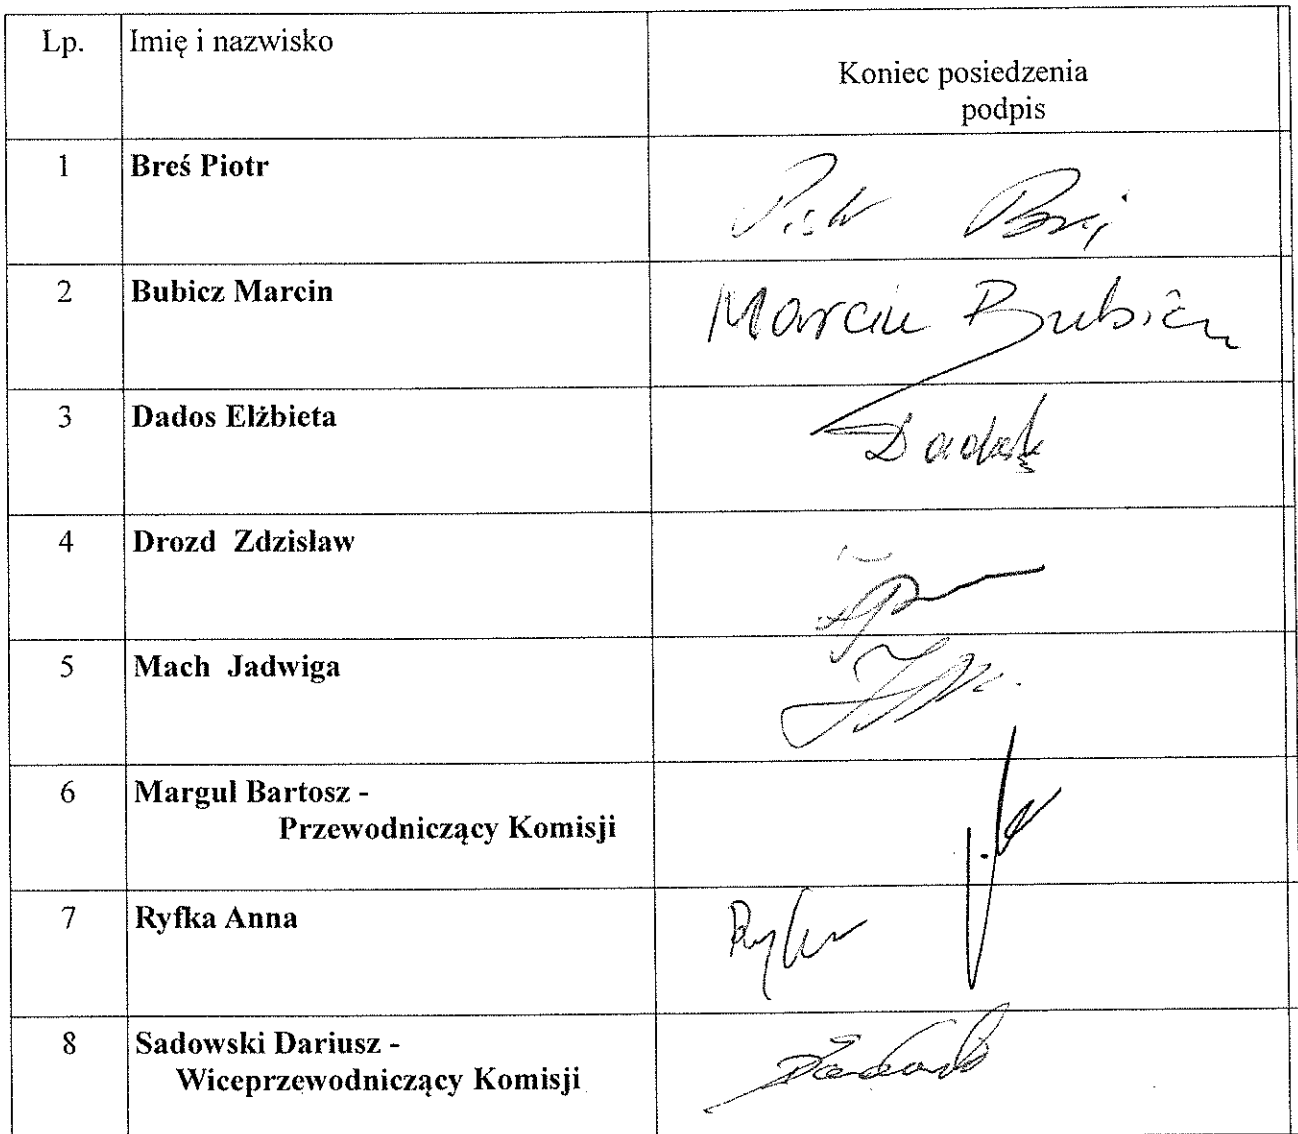 Lp. Imię i nazwisko
Koniec posiedzenia
podpis
1 Breś Piotr
Piotr Breś
2 Bubicz Marcin
Marcin Bubicz
3 Dados Elżbieta
Dados
4 Drozd Zdzisław
5 Mach Jadwiga
6 Margul Bartosz -
Przewodniczący Komisji
7 Ryfka Anna
8 Sadowski Dariusz -
Wiceprzewodniczący Komisji